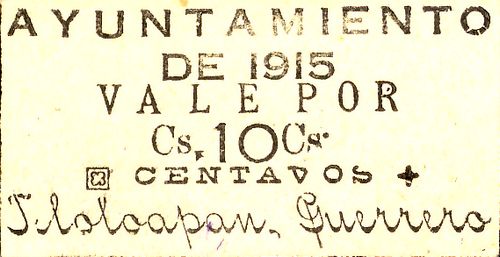 AYUNTAMIENTO
DE 1915
VALE POR
Cs. 10 Cs.
CENTAVOS
Teloloapan, Guerrero